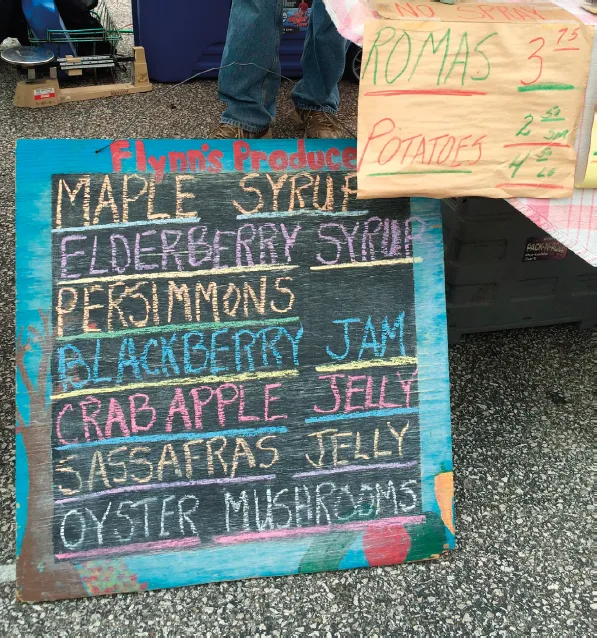 NO SPRAY
ROMAS 3 75
POTATOES 2 50 SM
4 50 LG
Flynn's Produce
MAPLE SYRUP
ELDERBERRY SYRUP
PERSIMMONS
BLACKBERRY JAM
CRAB APPLE JELLY
SASSAFRAS JELLY
OYSTER MUSHROOMS